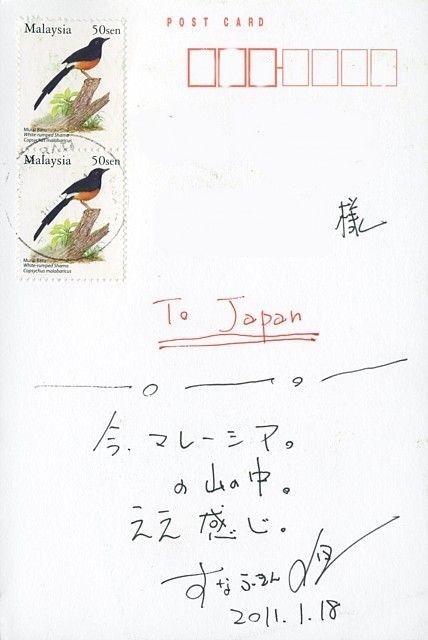 POST CARD
Malaysia 50sen
Murai Batu
White-rumped Shama
Copsychus malabaricus
Malaysia 50sen
Murai Batu
White-rumped Shama
Copsychus malabaricus
様
To Japan
今、マレーシア。
の山の中。
ええ感じ。
すなふきん
2011.1.18